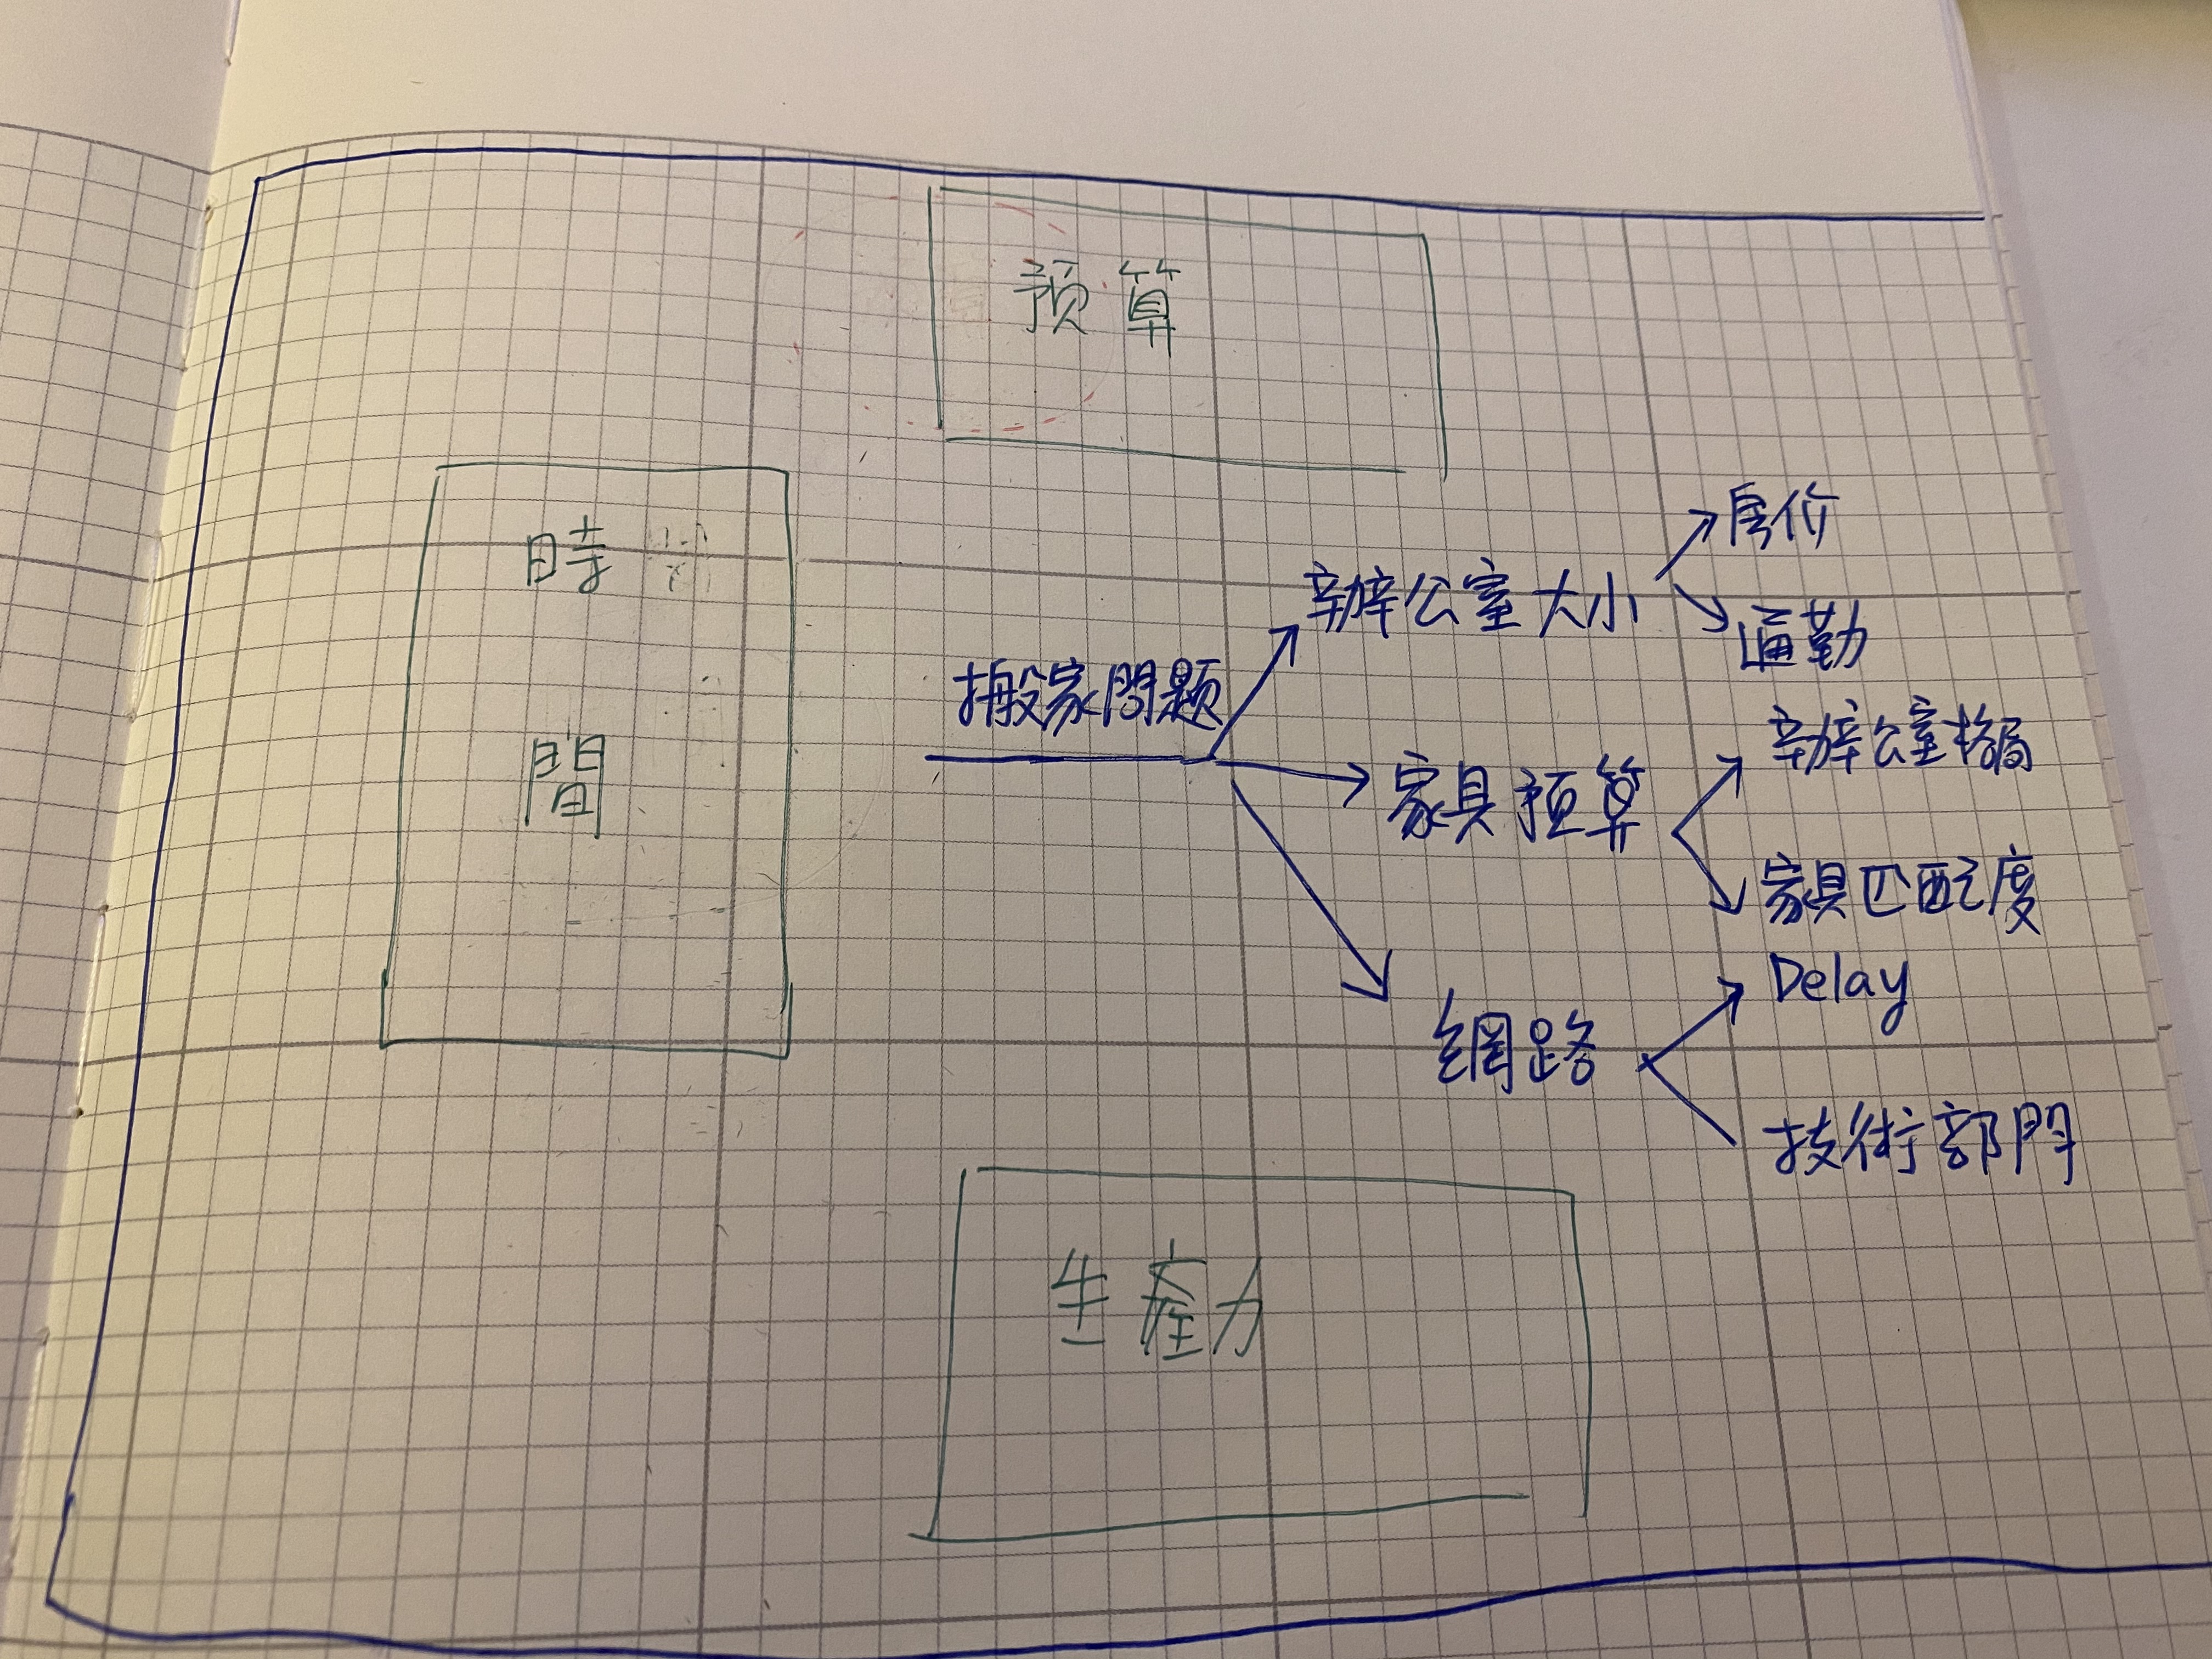 预算
時
間
搬家問题
辦公室大小
房价
通勤
家具预算
辦公室格局
家具匹配度
網路
Delay
技術部門
生產力